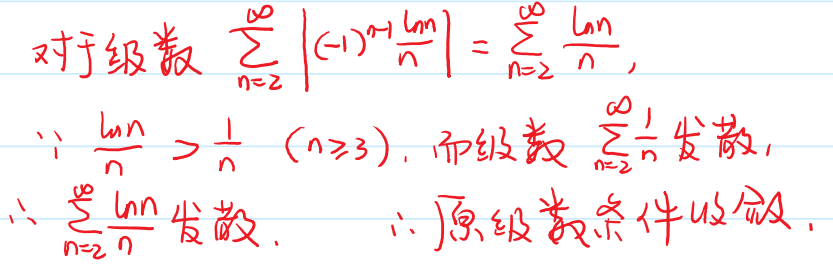 对于级数 $\sum_{n=2}^{\infty} \left| (-1)^{n-1} \frac{\ln n}{n} \right| = \sum_{n=2}^{\infty} \frac{\ln n}{n}$,
∵ $\frac{\ln n}{n} > \frac{1}{n}$ (n≥3). 而级数 $\sum_{n=2}^{\infty} \frac{1}{n}$ 发散,
∴ $\sum_{n=2}^{\infty} \frac{\ln n}{n}$ 发散. ∴ 原级数条件收敛.